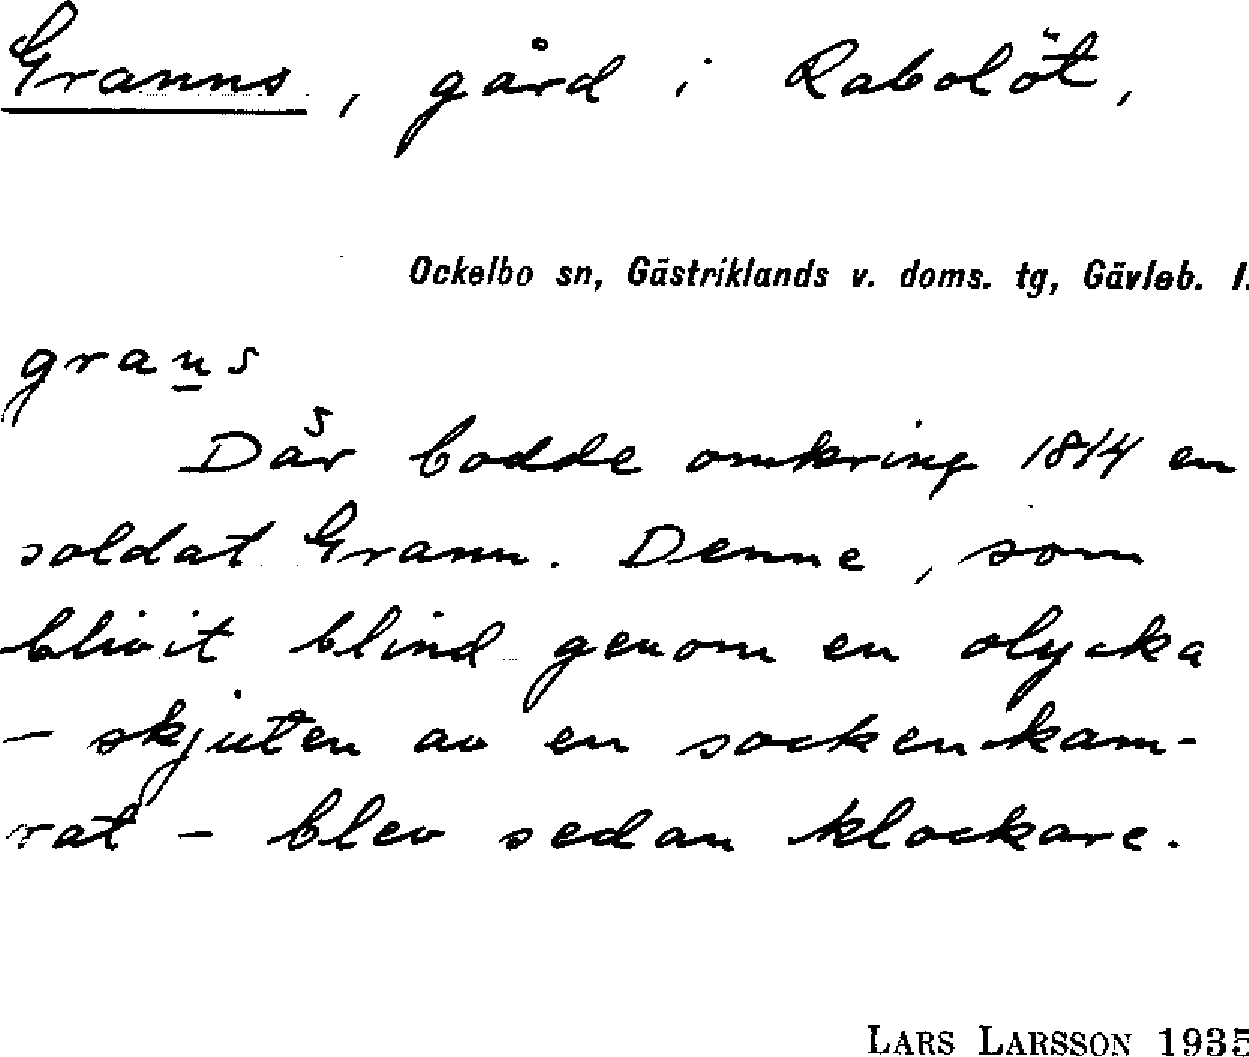 Granns, gård i Rabolöt,
Ockelbo sn, Gästriklands v. doms. tg, Gävleb. l.
grans
Där bodde omkring 1814 en
soldat Grann. Denne, som
blivit blind genom en olycka
– skjuten av en sockenkam-
rat – blev sedan klockare.
LARS LARSSON 1935